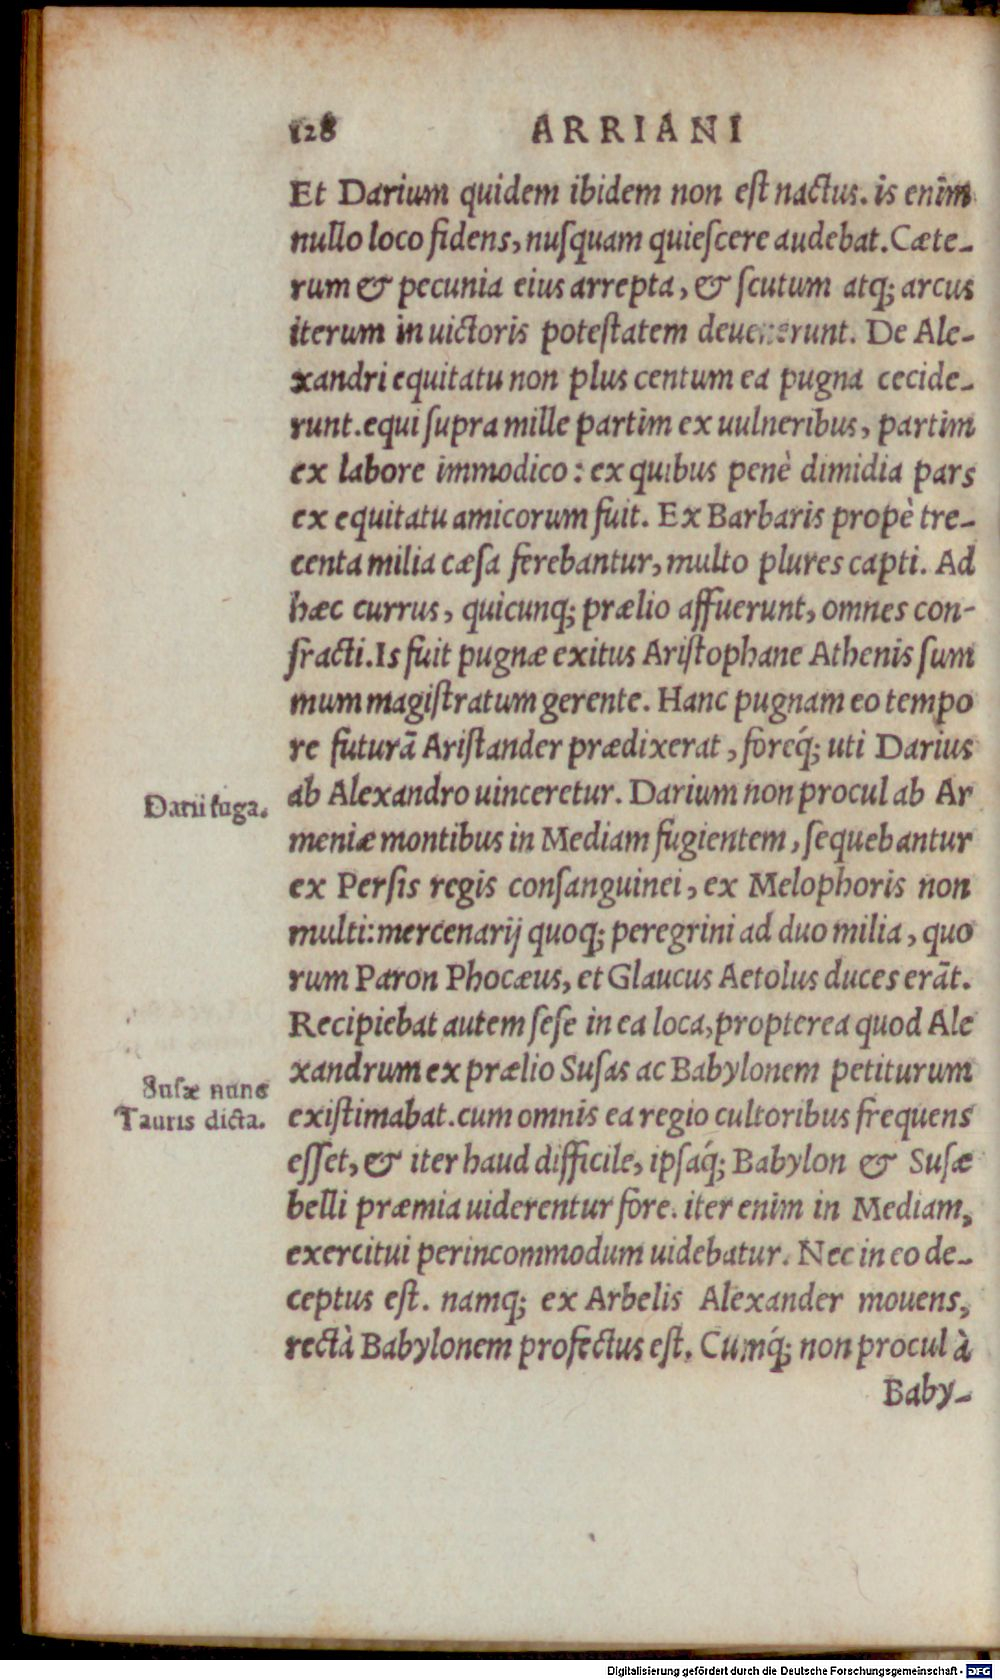 128 ARRIANI
Et Darium quidem ibidem non eſt nactus. is enim
nullo loco fidens, nuſquam quieſcere audebat. Cæte-
rum & pecunia eius arrepta, & ſcutum atq; arcus
iterum in uictoris poteſtatem deuenerunt. De Ale-
xandri equitatu non plus centum ea pugna cecide-
runt. equi ſupra mille partim ex uulneribus, partim
ex labore immodico: ex quibus penè dimidia pars
ex equitatu amicorum fuit. Ex Barbaris propè tre-
centa milia cæſa ferebantur, multo plures capti. Ad
hæc currus, quicunq; prælio affuerunt, omnes con-
fracti. Is fuit pugnæ exitus Ariſtophane Athenis ſum
mum magiſtratum gerente. Hanc pugnam eo tempo
re futurã Ariſtander prædixerat, foreq́; uti Darius
Darii fuga.
ab Alexandro uinceretur. Darium non procul ab Ar
meniæ montibus in Mediam fugientem, ſequebantur
ex Perſis regis conſanguinei, ex Melophoris non
multi: mercenarij quoq; peregrini ad duo milia, quo
rum Paron Phocæus, et Glaucus Aetolus duces erãt.
Recipiebat autem ſeſe in ea loca, propterea quod Ale
xandrum ex prælio Suſas ac Babylonem petiturum
Suſæ nunc
Tauris dicta.
exiſtimabat. cum omnis ea regio cultoribus frequens
eſſet, & iter haud difficile, ipſaq́; Babylon & Suſæ
belli præmia uiderentur fore. iter enim in Mediam,
exercitui perincommodum uidebatur. Nec in eo de-
ceptus eſt. namq; ex Arbelis Alexander mouens,
rectà Babylonem profectus eſt. Cumq́; non procul à
Baby-
Digitalisierung gefördert durch die Deutsche Forschungsgemeinschaft - DFG